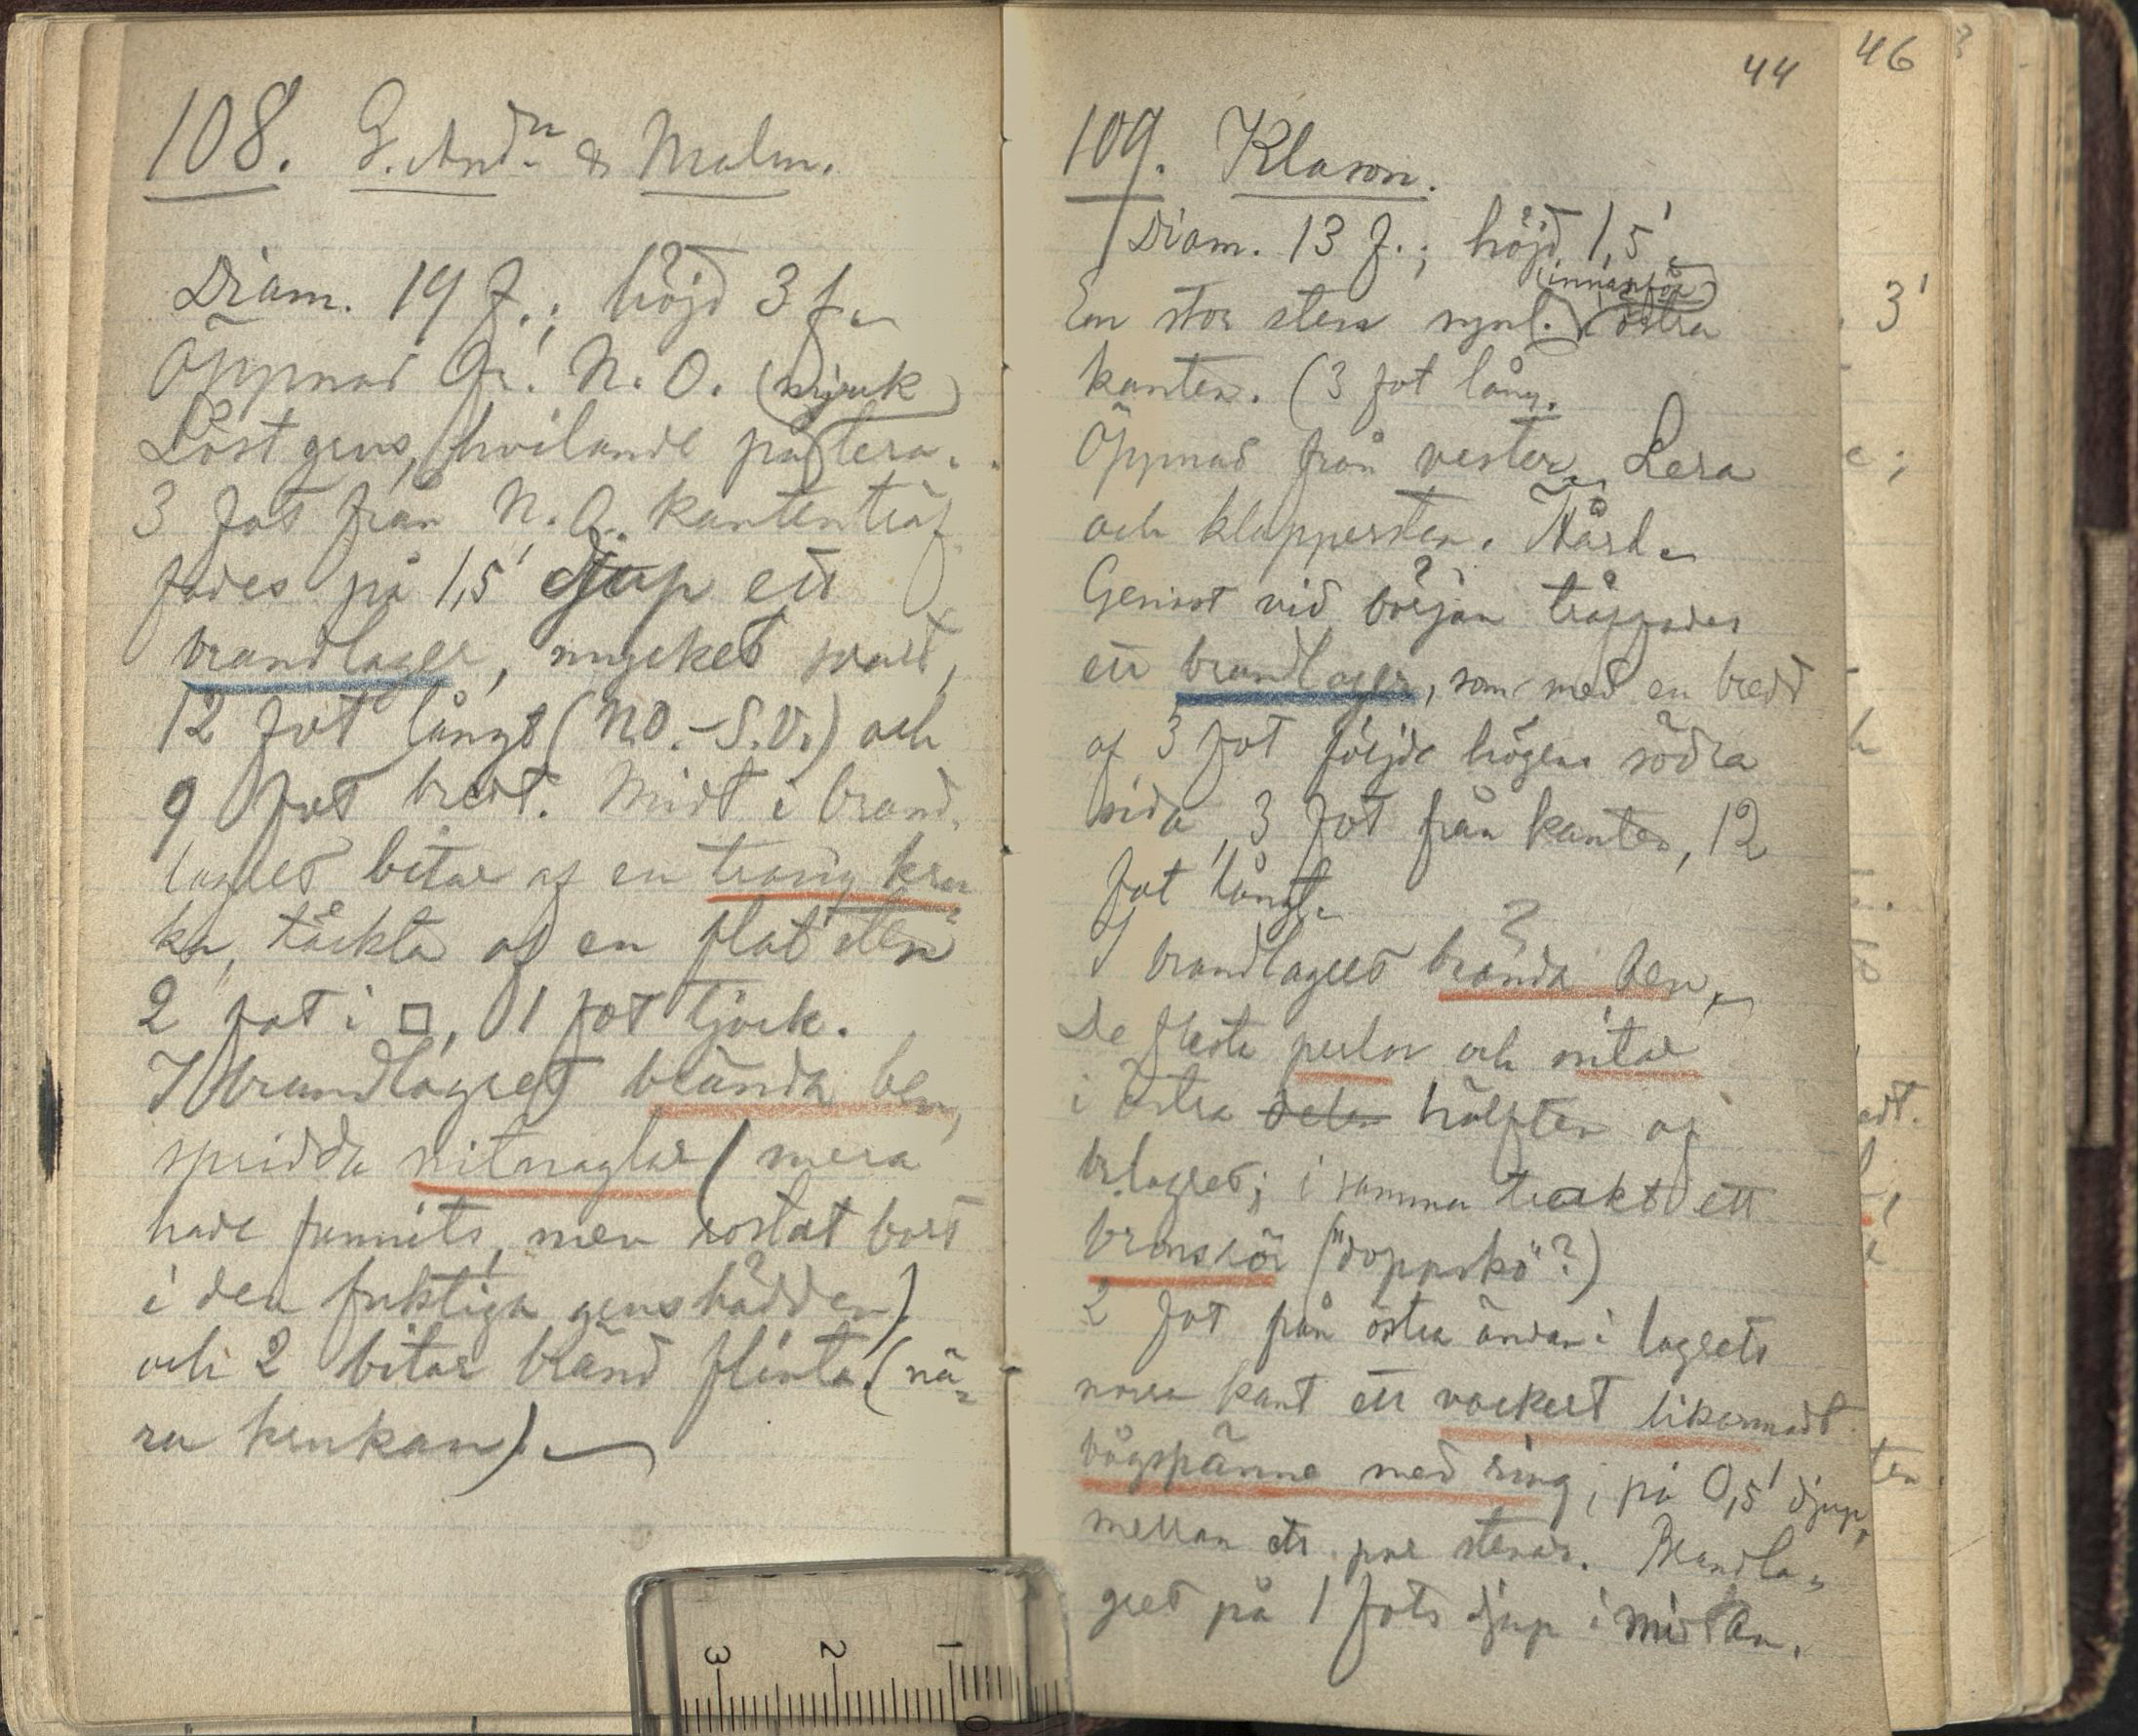 108. G. And.n & Malm.
Diam. 19 f.; höjd 3 f.
Öppnad fr. N. O. (mjuk)
Löst grus, hvilande på lera.
3 fot från N.O. kanten träf
fades på 1,5' djup ett
brandlager, mycket svart,
12 fot långt (NO.-S.V.) och
9 fot bredt. Midt i brand-
lagret bitar af en trasig kru
ka, täckta af en flat sten
2 fot i □, 1 fot tjock.
I brandlagret brända ben,
spridda nitnaglar (mera
hade funnits, men rostat bort
i den fuktiga grusbädden)
och 2 bitar bränd flinta (nä-
ra krukan).
44
109. Klason.
Diam. 13 f.; höjd 1,5'.
(innanför)
En stor sten synl. östra
kanten. (3 fot lång.
Öppnad från vester. Lera
och klappersten. Hård.
Genast vid början träffades
ett brandlager, som med en bredd
af 3 fot följde högens södra
sida, 3 fot från kanten, 12
fot långt.
I brandlagret brända ben.
De flesta perlor och nitar
i östra delen hälften af
br.lagret; i samma trakt ett
bronsrör ("doppsko"?)
2 fot från östra ändan i lagrets
norra kant ett vackert likarmadt
bågspänne med ring, på 0,5' djup,
mellan ett par stenar. Brandla-
gret på 1 fots djup i midten.
46
3'